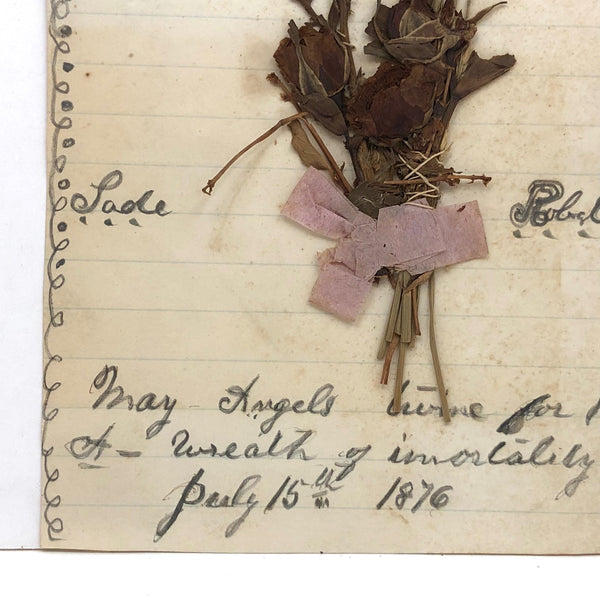 Sade
May Angels twine for
A - wreath of imortality
July 15th 1876